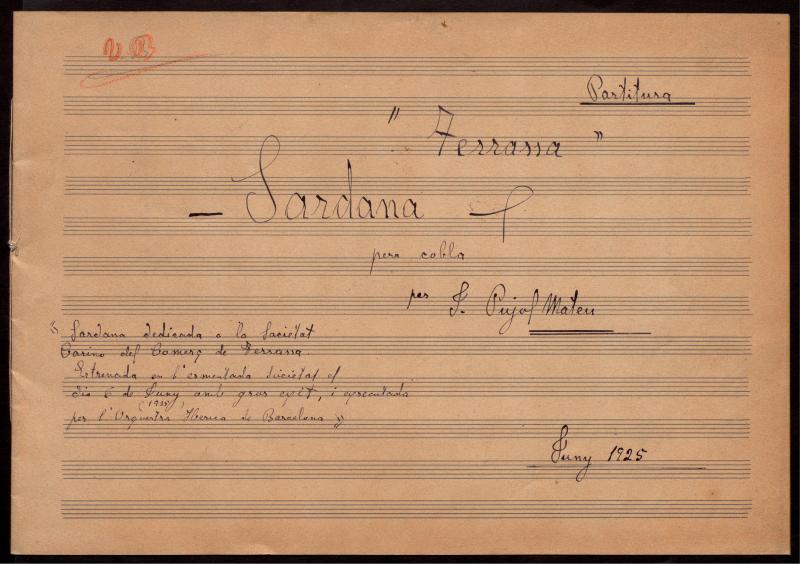 V. B
Partitura
"Terrassa"
— Sardana —
pera cobla
per F. Pujol Mateu
"Sardana dedicada a la Societat
Casino del Comerç de Terrassa.
Estrenada en l'ermentada Societat el
dia 6 de Juny amb gran exit, i executada
(1925)
per l'Orquestra Iberica de Barcelona"
Juny 1925